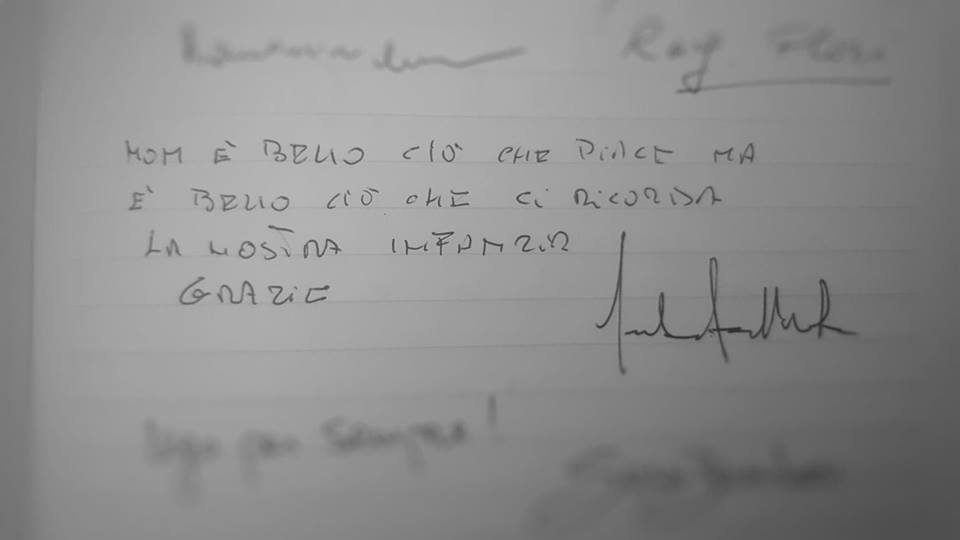 Ray
NON È BELLO CIÒ CHE PIACE MA
È BELLO CIÒ CHE CI RICORDA
LA NOSTRA INFANZIA
GRAZIE
per sempre!